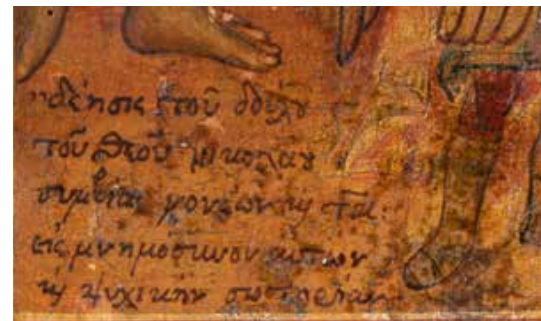 δέησις τοῦ δούλου
τοῦ Θεοῦ νικολάου
συμβίας γονέων ϗ
εἰς μνημόσυνον αὐτῶν
ϗ ψυχικὴν σωτηρίαν